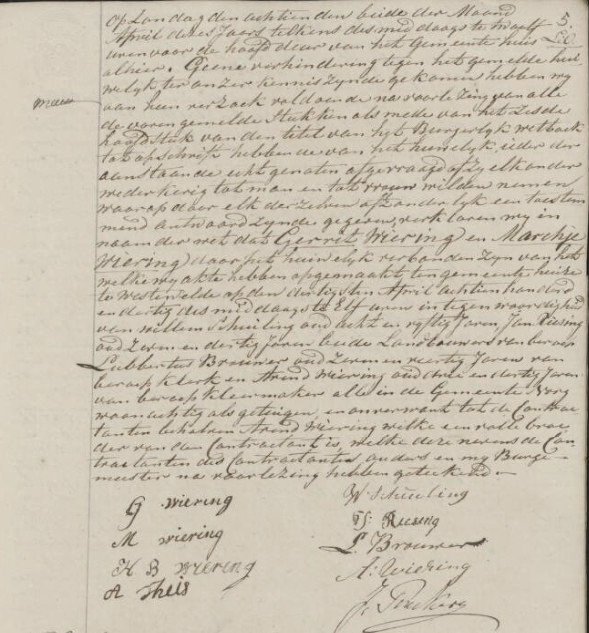 op Zondag den achtienden beide der Maand
April dezes Jaars telkens des middags te twaalf
uren voor de hoofd deur van het Gemeente huis
alhier. Geene verhindering tegen het gemelde huu-
welyk ter onzer kennis zynde gekomen hebben wy
aan hun verzoek voldoende na voorlezing van alle
de voren gemelde Stukken als mede van het Zesde
hoofdstuk van den titel van hyt Burgerlyk wetboek
tot opschrift hebbende van het huwelyk, ieder der
aanstaande echtgenoten afgevraagd of zy elkander
wederkerig tot man en tot vrouw wilden nemen
waarop door elk derzelven afzonderlyk een toestem
mend antwoord zynde gegeven, verklaren wy in
naam der wet dat Gerrit Wiering en Marchje
Wiering door het huwelyk verbonden zyn van het
welke wy akte hebben opgemaakt ten gemeente huize
te op den dertigsten April achttien honderd
en dertig des middags te Elf uren in tegenwoordigheid
van willem Schuiling oud acht en vyftig Jaren, Jan
oud Zeven en dertig Jaren beide Landbouwers van beroep
Lubbertus Brouwer oud Zeven en veertig Jaren van
beroep Klerk en Arend Wiering oud drie en dertig Jaren
van beroep Kleermaker alle in de Gemeente Norg
woonachtig als getuigen, en aanverwant tot de Contrac
tanten behalven Arend Wiering welke een volle broe
der van den Contractant is, welke deze nevens de Con
tractanten des Contractanten ouders en my Burge-
meester na voorlezing hebben geteekend.
5.
G Wiering
M wiering
H B wiering
A Theis
W. Schuiling
L. Brouwer
A: Wiering